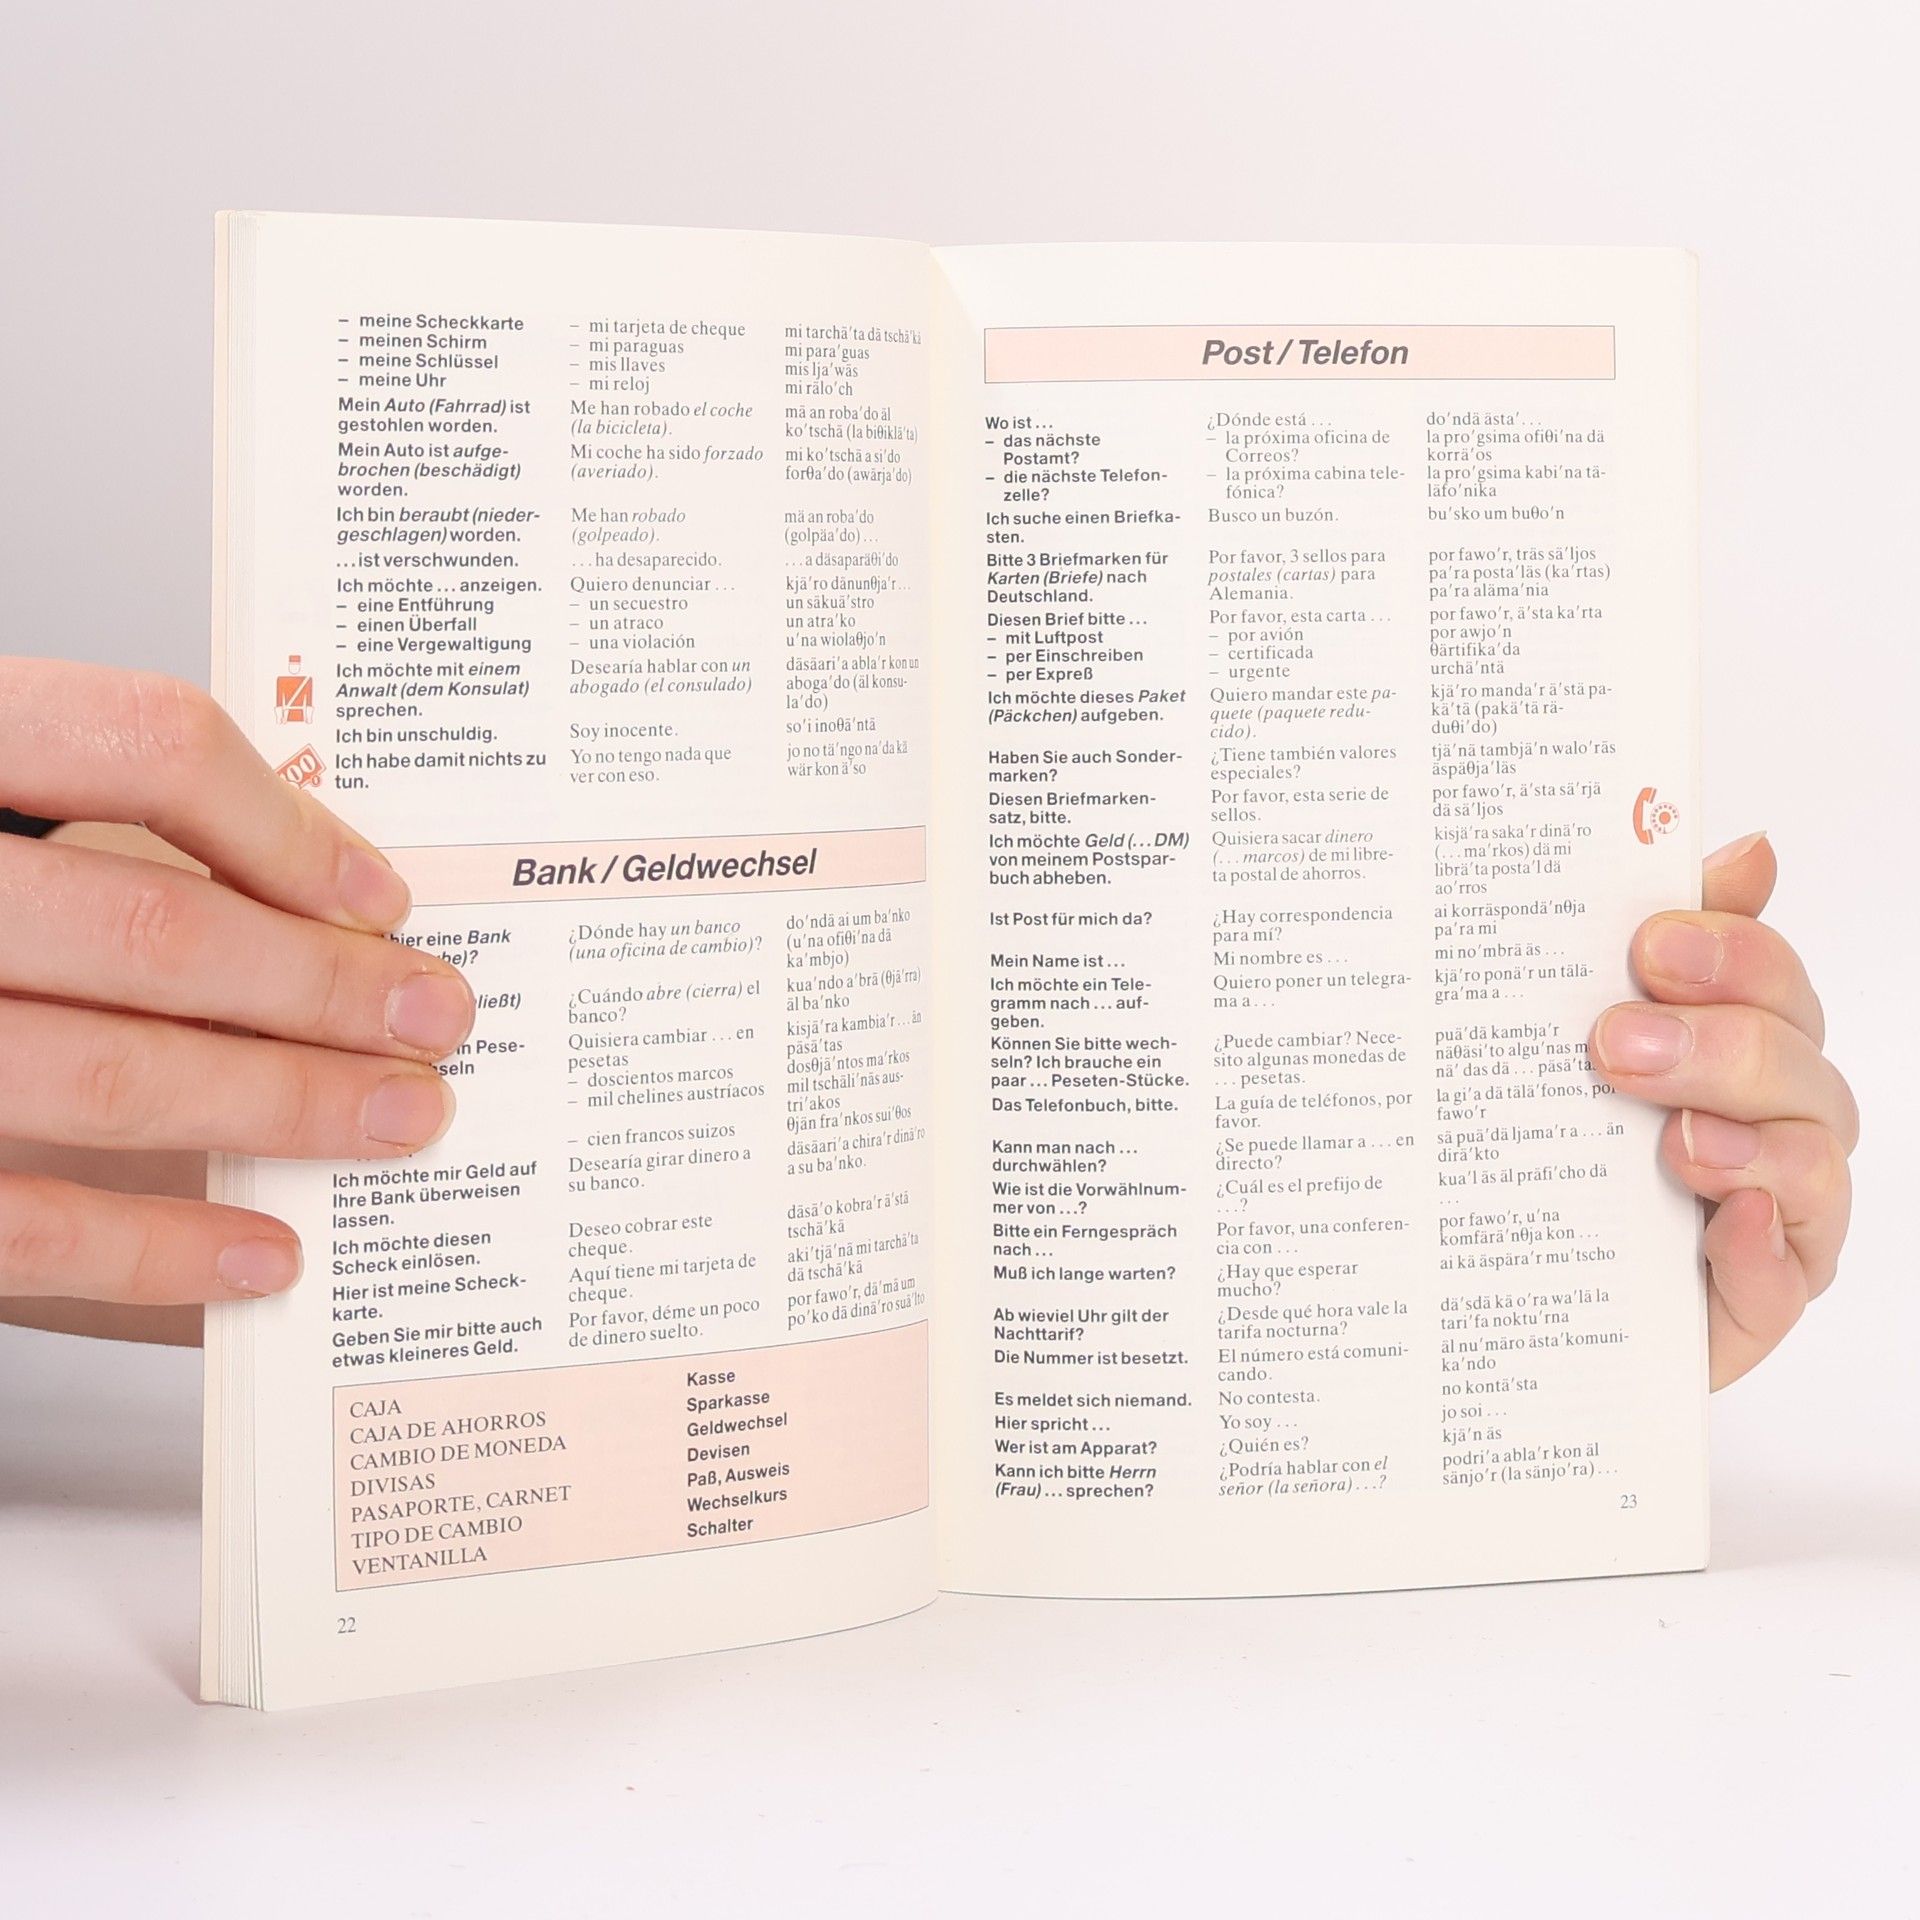 – meine Scheckkarte
– meinen Schirm
– meine Schlüssel
– meine Uhr
Mein Auto (Fahrrad) ist
gestohlen worden.
Mein Auto ist aufge-
brochen (beschädigt)
worden.
Ich bin beraubt (nieder-
geschlagen) worden.
...ist verschwunden.
Ich möchte ... anzeigen.
– eine Entführung
– einen Überfall
– eine Vergewaltigung
Ich möchte mit einem
Anwalt (dem Konsulat)
sprechen.
Ich bin unschuldig.
Ich habe damit nichts zu
tun.
– mi tarjeta de cheque
– mi paraguas
– mis llaves
– mi reloj
Me han robado el coche
(la bicicleta).
Mi coche ha sido forzado
(averiado).
Me han robado
(golpeado).
...ha desaparecido.
Quiero denunciar ...
– un secuestro
– un atraco
– una violación
Desearía hablar con un
abogado (el consulado)
Soy inocente.
Yo no tengo nada que
ver con eso.
mi tarchä'ta dä tschä'kä
mi para'guas
mis lja'wäs
mi rälo'ch
mä an roba'do äl
ko'tschä (la biθiklä'ta)
mi ko'tschä a si'do
forθa'do (awärja'do)
mä an roba'do
(golpäa'do)...
...a däsaparäθi'do
kjä'ro dänunθja'r...
un säkuä'stro
un atra'ko
u'na wiolaθjo'n
däsäari'a abla'r kon un
aboga'do (äl konsu-
la'do)
so'i inoθä'ntä
jo no tä'ngo na'da kä
wär kon ä'so
100
Bank / Geldwechsel
hier eine Bank
he)?
ließt)
in Pese-
seln
Ich möchte mir Geld auf
Ihre Bank überweisen
lassen.
Ich möchte diesen
Scheck einlösen.
Hier ist meine Scheck-
karte.
Geben Sie mir bitte auch
etwas kleineres Geld.
¿Dónde hay un banco
(una oficina de cambio)?
¿Cuándo abre (cierra) el
banco?
Quisiera cambiar ... en
pesetas
– doscientos marcos
– mil chelines austríacos
– cien francos suizos
Desearía girar dinero a
su banco.
Deseo cobrar este
cheque.
Aquí tiene mi tarjeta de
cheque.
Por favor, déme un poco
de dinero suelto.
do'ndä ai um ba'nko
(u'na ofiθi'na dä
ka'mbjo)
kua'ndo a'brä (θjä'rra)
äl ba'nko
kisjä'ra kambia'r...än
päsä'tas
dosθjä'ntos ma'rkos
mil tschäli'näs aus-
tri'akos
θjän fra'nkos sui'θos
däsäari'a chira'r dinä'ro
a su ba'nko.
däsä'o kobra'r ä'stä
tschä'kä
aki'tjä'nä mi tarchä'ta
dä tschä'kä
por fawo'r, dä'mä um
po'ko dä dinä'ro suä'lto
CAJA
CAJA DE AHORROS
CAMBIO DE MONEDA
DIVISAS
PASAPORTE, CARNET
TIPO DE CAMBIO
VENTANILLA
Kasse
Sparkasse
Geldwechsel
Devisen
Paß, Ausweis
Wechselkurs
Schalter
22
Post / Telefon
Wo ist ...
– das nächste
Postamt?
– die nächste Telefon-
zelle?
Ich suche einen Briefka-
sten.
Bitte 3 Briefmarken für
Karten (Briefe) nach
Deutschland.
Diesen Brief bitte ...
– mit Luftpost
– per Einschreiben
– per Expreß
Ich möchte dieses Paket
(Päckchen) aufgeben.
Haben Sie auch Sonder-
marken?
Diesen Briefmarken-
satz, bitte.
Ich möchte Geld (... DM)
von meinem Postspar-
buch abheben.
Ist Post für mich da?
Mein Name ist ...
Ich möchte ein Tele-
gramm nach ... auf-
geben.
Können Sie bitte wech-
seln? Ich brauche ein
paar ... Peseten-Stücke.
Das Telefonbuch, bitte.
Kann man nach ...
durchwählen?
Wie ist die Vorwählnum-
mer von ...?
Bitte ein Ferngespräch
nach ...
Muß ich lange warten?
Ab wieviel Uhr gilt der
Nachttarif?
Die Nummer ist besetzt.
Es meldet sich niemand.
Hier spricht ...
Wer ist am Apparat?
Kann ich bitte Herrn
(Frau) ... sprechen?
¿Dónde está ...
– la próxima oficina de
Correos?
– la próxima cabina tele-
fónica?
Busco un buzón.
Por favor, 3 sellos para
postales (cartas) para
Alemania.
Por favor, esta carta ...
– por avión
– certificada
– urgente
Quiero mandar este pa-
quete (paquete redu-
cido).
¿Tiene también valores
especiales?
Por favor, esta serie de
sellos.
Quisiera sacar dinero
(... marcos) de mi libre-
ta postal de ahorros.
¿Hay correspondencia
para mí?
Mi nombre es ...
Quiero poner un telegra-
ma a ...
¿Puede cambiar? Nece-
sito algunas monedas de
... pesetas.
La guía de teléfonos, por
favor.
¿Se puede llamar a ... en
directo?
¿Cuál es el prefijo de
...?
Por favor, una conferen-
cia con ...
¿Hay que esperar
mucho?
¿Desde qué hora vale la
tarifa nocturna?
El número está comuni-
cando.
No contesta.
Yo soy ...
¿Quién es?
¿Podría hablar con el
señor (la señora) ...?
do'ndä ästa'...
la pro'gsima ofiθi'na dä
korrä'os
la pro'gsima kabi'na tä-
läfo'nika
bu'sko um buθo'n
por fawo'r, träs sä'ljos
pa'ra posta'läs (ka'rtas)
pa'ra aläma'nia
por fawo'r, ä'sta ka'rta
por awjo'n
θärtifika'da
urchä'ntä
kjä'ro manda'r ä'stä pa-
kä'tä (pakä'tä rä-
duθi'do)
tjä'nä tambjä'n walo'räs
äspäθja'läs
por fawo'r, ä'sta sä'rjä
dä sä'ljos
kisjä'ra saka'r dinä'ro
(... ma'rkos) dä mi
librä'ta posta'l dä
ao'rros
ai korräspondä'nθja
pa'ra mi
mi no'mbrä äs ...
kjä'ro ponä'r un tälä-
gra'ma a ...
puä'dä kambja'r
näθäsi'to algu'nas m
nä' das dä ... päsä'ta
la gi'a dä tälä'fonos, por
fawo'r
sä puä'dä ljama'r a ... än
dirä'kto
kua'l äs äl präfi'cho dä
...
por fawo'r, u'na
komfärä'nθja kon ...
ai kä äspära'r mu'tscho
dä'sdä kä o'ra wa'lä la
tari'fa noktu'rna
äl nu'märo ästa'komuni-
ka'ndo
no kontä'sta
jo soi ...
kjä'n äs
podri'a abla'r kon äl
sänjo'r (la sänjo'ra)...
23